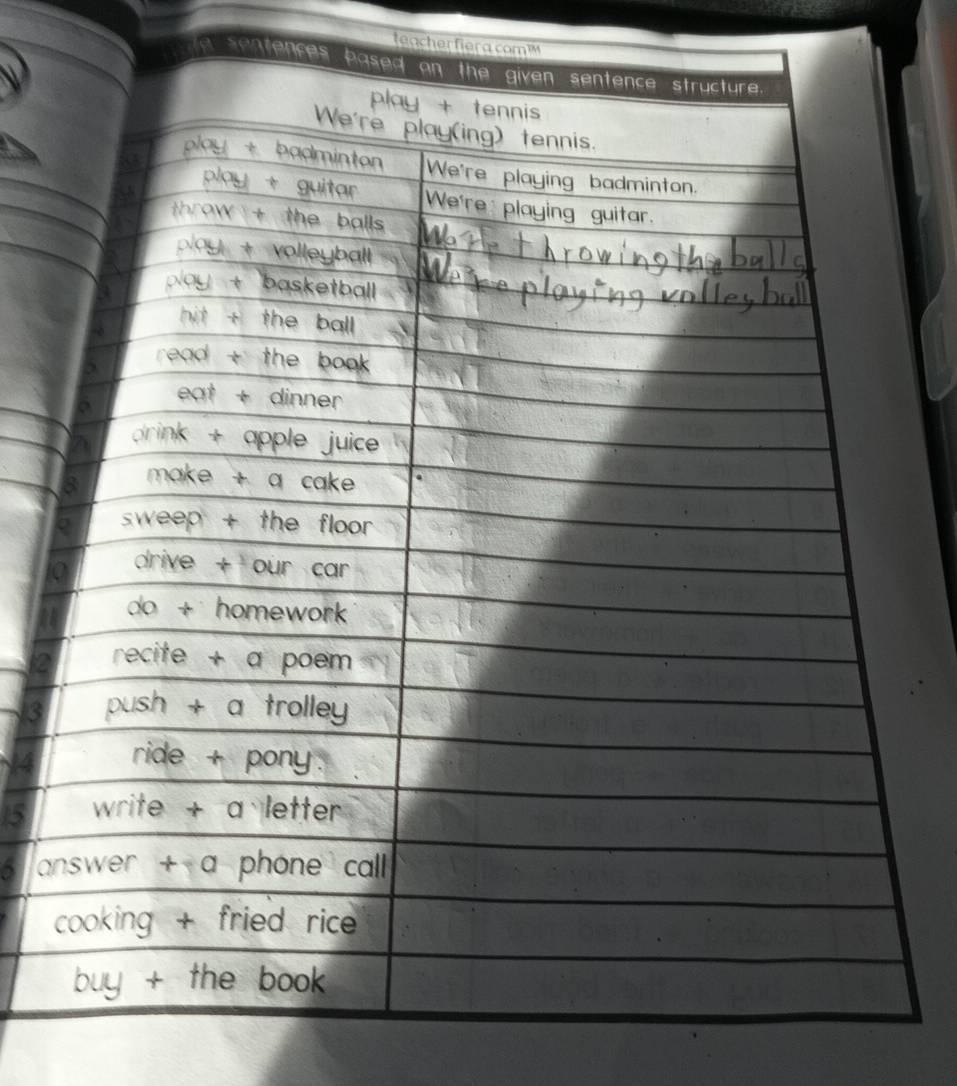 teacherfiera.com™
sentences based on the given sentence structure.
play + tennis
We're play(ing) tennis.
play + badminton We're playing badminton.
play + guitar We're playing guitar.
throw + the balls We're throwing the balls
play + volleyball We're playing volleyball
play + basketball
hit + the ball
read + the book
eat + dinner
drink + apple juice
8 make + a cake
9 sweep + the floor
10 drive + our car
11 do + homework
12 recite + a poem
13 push + a trolley
14 ride + pony
15 write + a letter
6 answer + a phone call
cooking + fried rice
buy + the book